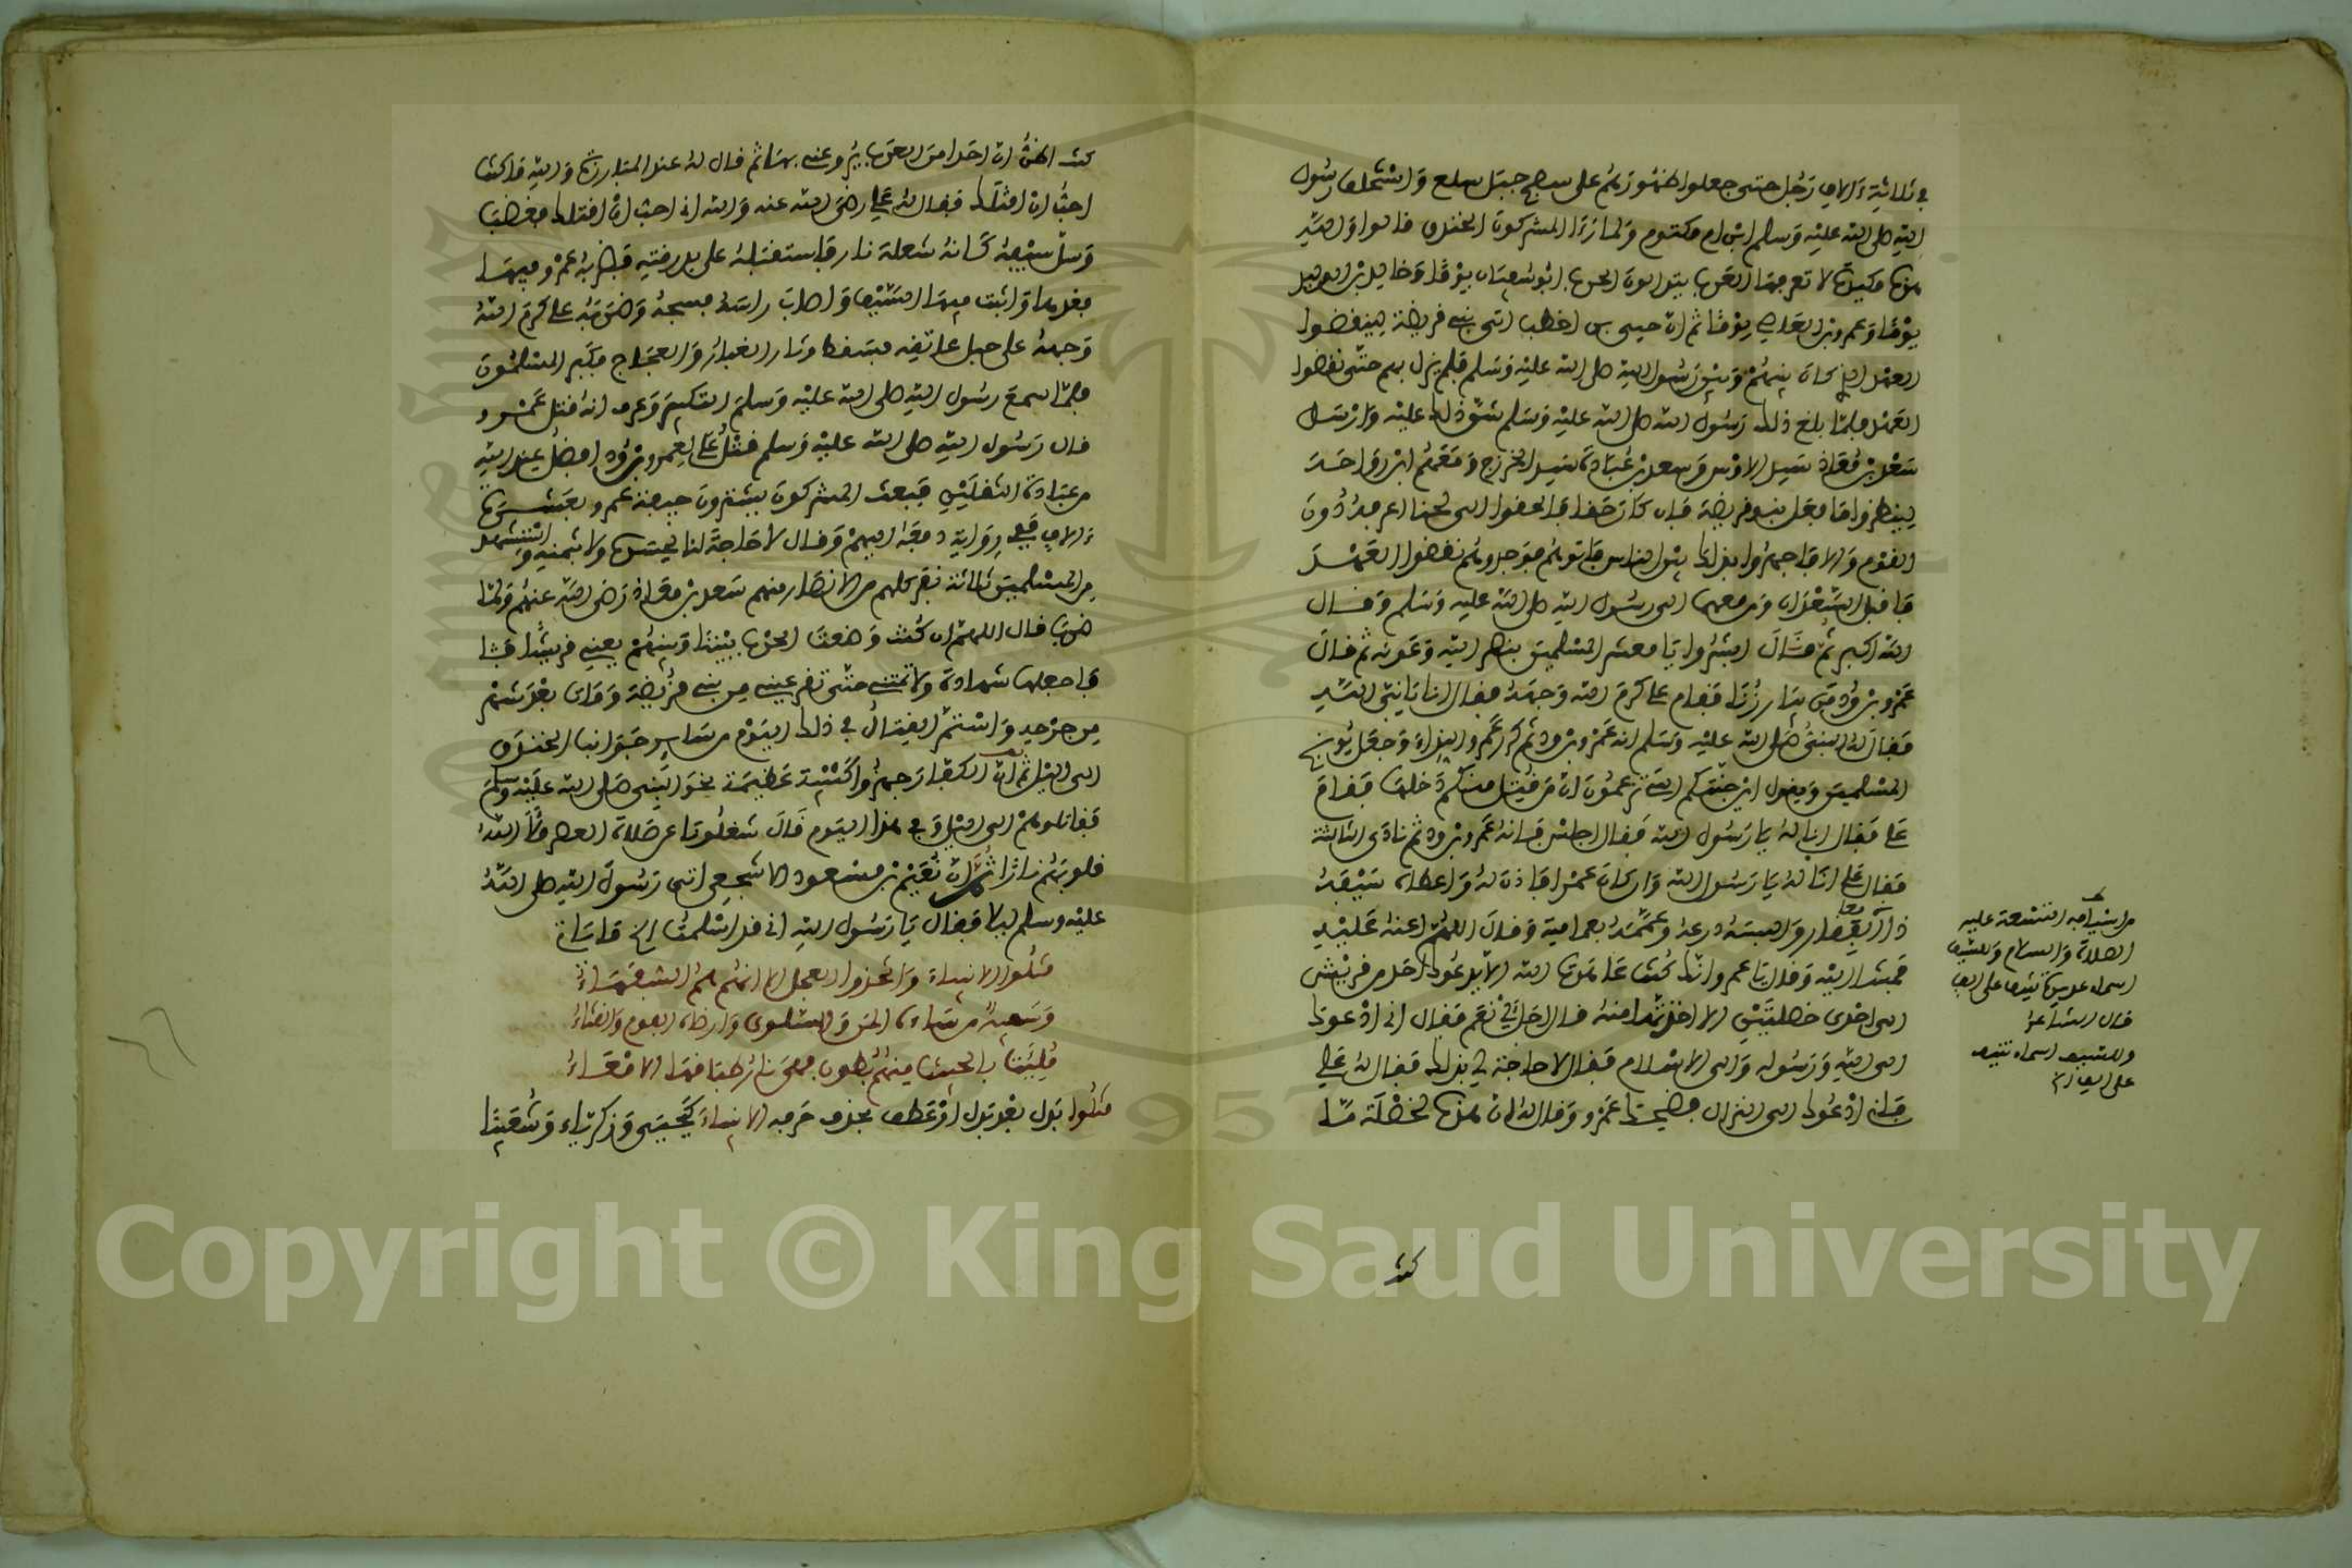 في ثلاثة ءالاف رجل حتى جعلوا ظهورهم على سطح جبل سلع واستخلف رسول
الله صلى الله عليه وسلم ابن ام مكتوم ولما رءا المشركون الخندق قالوا والله
هذه مكيدة لا تعرفها العرب يتولون الحرب ابو سفيان يوما وخالد بن الوليد
يوما وعمرو بن العاصي يوما ثم ان حيي بن اخطب اتى بني قريظة لينقضوا
العهد الذي كان بينهم وبين رسول الله صلى الله عليه وسلم فلم يزل بهم حتى نقضوا
العهد فلما بلغ ذلك رسول الله صلى الله عليه وسلم شق ذلك عليه وارسل
سعد بن معاذ سيد الاوس وسعد بن عبادة سيد الخزرج ومعهم ابن رواحة
لينظروا ما فعل بنو قريظة فان كان حقا فالحنوا الي لحنا اعرفه دون
القوم والا فاجهروا بذلك بين الناس فاتوهم فوجدوهم نقضوا العهد
فاقبل السعدان ومن معهما الى رسول الله صلى الله عليه وسلم وقال
الله اكبر ثم قال ابشروا يا معشر المسلمين بنصر الله وعونه ثم قال
عمرو بن ود من يبارزنا فقام علي كرم الله وجهه فقال انا يا نبي الله
فقال له النبي صلى الله عليه وسلم انه عمرو بن ود ثم كرر عمرو النداء وجعل يوبخ
المسلمين ويقول اين جنتكم التي تزعمون ان من قتل منكم دخلها فقام
علي فقال انا له يا رسول الله فقال اجلس فانه عمرو بن ود ثم نادى الثالثة
فقال علي انا له يا رسول الله وان كان عمرا فاذن له واعطاه سيفه
ذا الفقار والبسه درعه وعممه بعمامته وقال اللهم اعنه عليه
فمشى اليه وقال يا عمرو انك كنت عاهدت الله لا يدعوك احد من قريش
الى احدى خصلتين الا اخذتها منه قال اجل نعم فقال اني ادعوك
الى الله ورسوله والى الاسلام فقال لا حاجة لي بذلك فقال له علي
فاني ادعوك الى النزال فضحك عمرو وقال له ان هذه لخصلة ما
من اسيافه التسعة عليه
الصلاة والسلام وللسيف
اسماء عديدة تنيف على الف
قال الشاعر
وللسيف اسماء تنيف
على الف
كنت
كنت اظن ان احدا من العرب يروعني بها ثم قال له عند المبارزة والله ما كنت
احب ان اقتلك فقال له علي رضي الله عنه والله اني احب ان اقتلك فغضب
وسل سيفه كانه شعلة نار فاستقبله على بدرقته فضربه عمرو فيها
فقدها واثبت فيها السيف واصاب راسه فشجه وضربه علي كرم الله
وجهه على حبل عاتقه فسقط وثار الغبار والعجاج فكبر المسلمون
فلما سمع رسول الله صلى الله عليه وسلم التكبير وعرف انه قتل عمرو
قال رسول الله صلى الله عليه وسلم قتل علي لعمرو بن ود افضل عند الله
من عبادة الثقلين فبعث المشركون يشترون جيفة عمرو بعشرة
ءالاف وفي رواية دفعه اليهم وقال لا حاجة لنا بجسده ولا بثمنه واستشهد
من المسلمين ثلاثة نفر كلهم من الانصار منهم سعد بن معاذ رضي الله عنهم ولما
ضرب قال اللهم ان كنت وضعت الحرب بيننا وبينهم يعني قريشا
فاجعلها شهادة ولا تمتني حتى تقر عيني من بني قريظة ومات بعد شهر
من جرحه واستمر القتال في ذلك اليوم من ساير جوانب الخندق
الى الليل ثم ان الكفار جهزوا كتيبة عظيمة نحو النبي صلى الله عليه وسلم
فقاتلوهم الى الليل وفي هذا اليوم قال شغلونا عن صلاة العصر ملأ الله
قلوبهم نارا ثم ان نعيم بن مسعود الاشجعي اتى رسول الله صلى الله
عليه وسلم ليلا فقال يا رسول الله اني قد اسلمت
قتلوا الانبياء واتخذوا العجل الا انهم هم السفهاء
وسفيه من ساءه المن والسلوى وارضاه الفوم والقثاء
ملئت بالخبيث منهم بطون فهي نار طباقها الامعاء
قتلوا بدل بعد بدل او عطف بحذف حرفه الانبياء كيحيى وزكرياء وشعيا